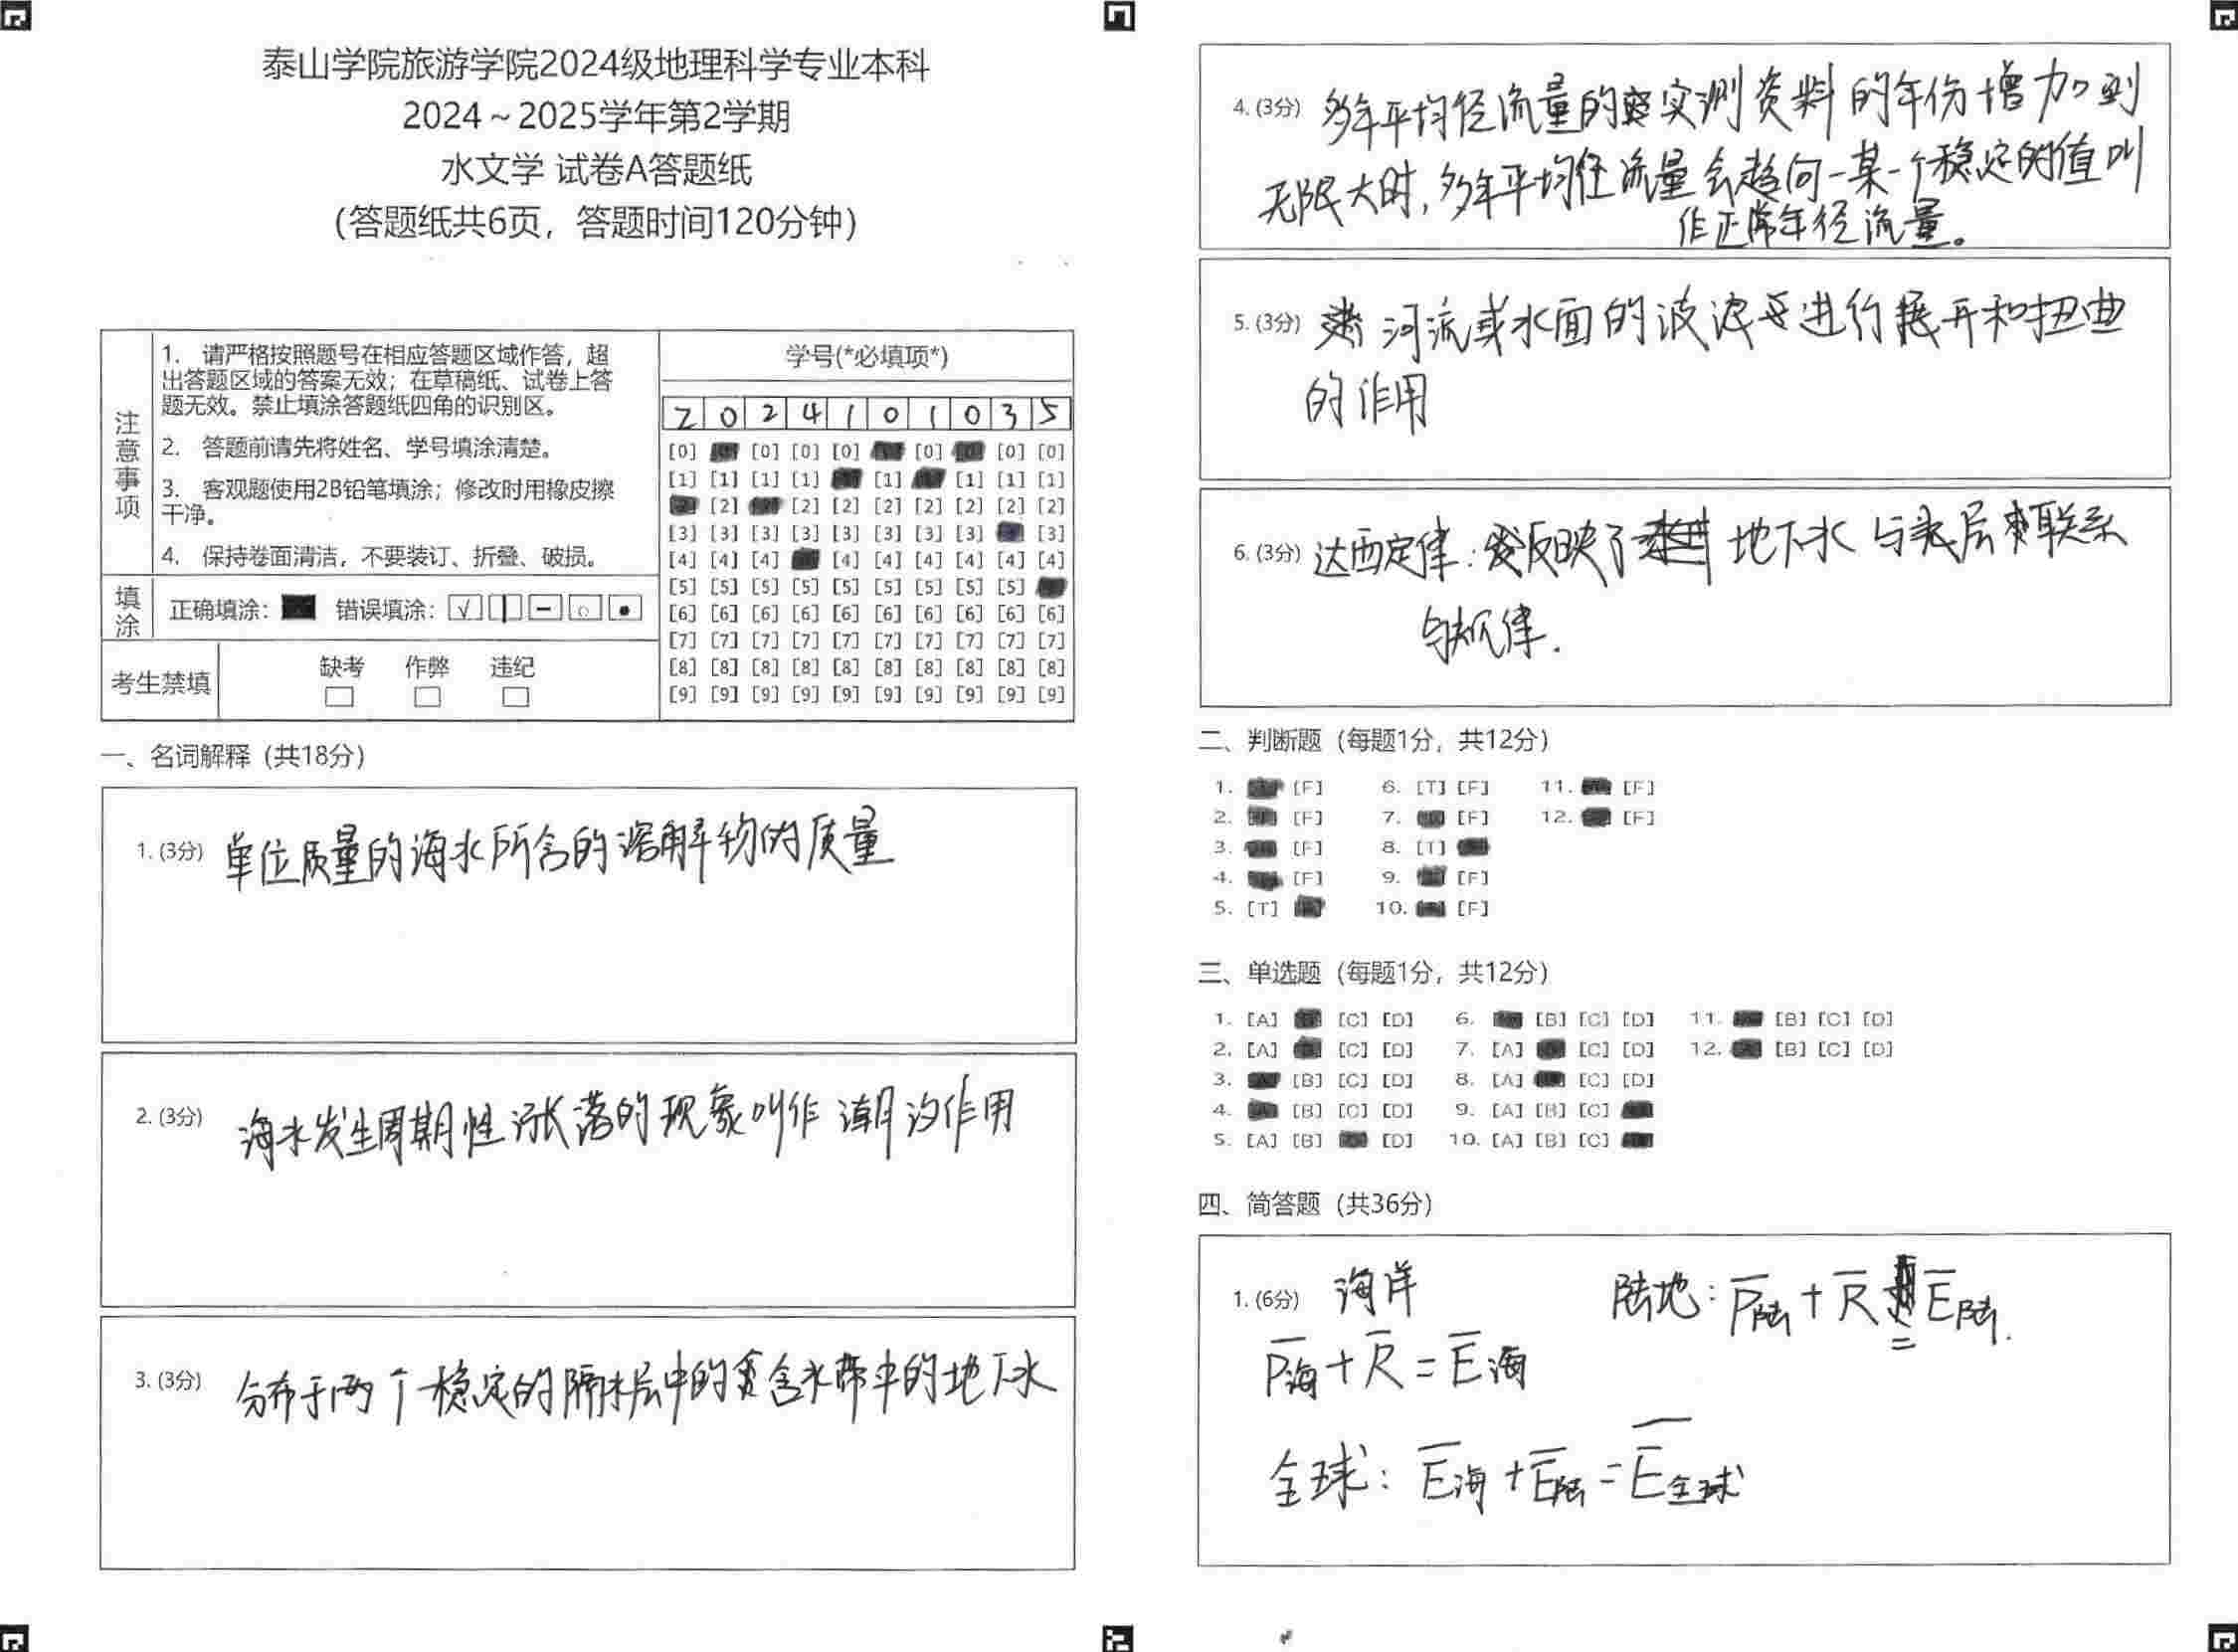 泰山学院旅游学院2024级地理科学专业本科
2024～2025学年第2学期
水文学 试卷A答题纸
(答题纸共6页，答题时间120分钟)
注意事项
1. 请严格按照题号在相应答题区域作答，超
出答题区域的答案无效；在草稿纸、试卷上答
题无效。禁止填涂答题纸四角的识别区。
2. 答题前请先将姓名、学号填涂清楚。
3. 客观题使用2B铅笔填涂；修改时用橡皮擦
干净。
4. 保持卷面清洁，不要装订、折叠、破损。
填涂
正确填涂： 错误填涂：
考生禁填
缺考 作弊 违纪
学号(*必填项*)
2 0 2 4 1 0 1 0 3 5
[0] [0] [0] [0] [0] [0] [0]
[1] [1] [1] [1] [1] [1] [1] [1]
[2] [2] [2] [2] [2] [2] [2] [2]
[3] [3] [3] [3] [3] [3] [3] [3] [3]
[4] [4] [4] [4] [4] [4] [4] [4] [4]
[5] [5] [5] [5] [5] [5] [5] [5] [5]
[6] [6] [6] [6] [6] [6] [6] [6] [6] [6]
[7] [7] [7] [7] [7] [7] [7] [7] [7] [7]
[8] [8] [8] [8] [8] [8] [8] [8] [8] [8]
[9] [9] [9] [9] [9] [9] [9] [9] [9] [9]
一、名词解释（共18分）
1. (3分) 单位质量的海水所含的溶解物的质量
2. (3分) 海水发生周期性涨落的现象叫作潮汐作用
3. (3分) 分布于两个稳定的隔水层中的含水带中的地下水
4. (3分) 多年平均径流量的实测资料的年份增加到
无限大时，多年平均径流量会趋向一某一个稳定的值叫
作正常年径流量。
5. (3分) 河流或水面的波浪进行展开和扭曲
的作用
6. (3分) 达西定律：反映了 地下水与表层联系
与规律.
二、判断题（每题1分，共12分）
1. [F] 6. [T] [F] 11. [F]
2. [F] 7. [F] 12. [F]
3. [F] 8. [T]
4. [F] 9. [F]
5. [T] 10. [F]
三、单选题（每题1分，共12分）
1. [A] [C] [D] 6. [B] [C] [D] 11. [B] [C] [D]
2. [A] [C] [D] 7. [A] [C] [D] 12. [B] [C] [D]
3. [B] [C] [D] 8. [A] [C] [D]
4. [B] [C] [D] 9. [A] [B] [C]
5. [A] [B] [D] 10. [A] [B] [C]
四、简答题（共36分）
1. (6分) 海洋 陆地：P̅陆 + R̅ = E̅陆.
P̅海 + R̅ = E̅海
全球：E̅海 + E̅陆 = E̅全球